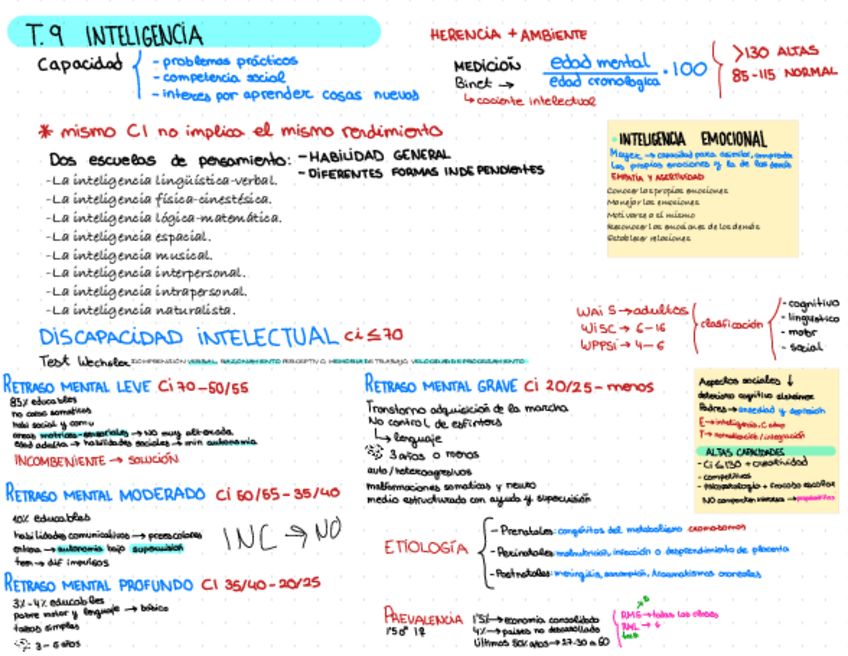 T.9 INTELIGENCIA
Capacidad
- problemas prácticos
- competencia social
- interes por aprender cosas nuevas
HERENCIA + AMBIENTE
MEDICIÓN
Binet →
edad mental
edad cronológica
· 100
>130 ALTAS
85-115 NORMAL
↳ cociente intelectual
* mismo CI no implica el mismo rendimiento
Dos escuelas de pensamiento: - HABILIDAD GENERAL
- DIFERENTES FORMAS INDEPENDIENTES
-La inteligencia lingüística-verbal.
-La inteligencia física-cinestésica.
-La inteligencia lógica-matemática.
-La inteligencia espacial.
-La inteligencia musical.
-La inteligencia interpersonal.
-La inteligencia intrapersonal.
-La inteligencia naturalista.
INTELIGENCIA EMOCIONAL
Mayer → capacidad para asimilar, comprender
las propias emociones y la de los demás
EMPATIA Y ASERTIVIDAD
Conocer las propias emociones
Manejar las emociones
Motivarse a sí mismo
Reconocer las emociones de los demás
Establecer relaciones
WAIS → adultos
WISC → 6-16
WPPSI → 4-6
clasificación
- cognitivo
- linguistico
- motor
- social
DISCAPACIDAD INTELECTUAL CI ≤ 70
Test Wechsler COMPRENSIÓN VERBAL, RAZONAMIENTO PERCEPTIVO, MEMORIA DE TRABAJO, VELOCIDAD DE PROCESAMIENTO
RETRASO MENTAL LEVE CI 70-50/55
85% educables
no causa somaticos
habi social y comu
areas motrices-sensoriales → no muy alterada
edad adulta → habilidades sociales → min autonomia
INCOMBENIENTE → SOLUCIÓN
RETRASO MENTAL MODERADO CI 50/55-35/40
10% educables
habilidades comunicativas → preescolares
→ autonomia bajo supervision
→ dif impulsos
INC → NO
RETRASO MENTAL PROFUNDO CI 35/40-20/25
3%-4% educables
pobre motor y lenguaje → básico
tareas simples
3-6 años
RETRASO MENTAL GRAVE CI 20/25-menos
Transtorno adquisición de la marcha
No control de esfínters
↳ lenguaje
3 años o menos
auto/heteroagresivos
malformaciones somaticas y neuro
medio estructurado con ayuda y supervisión
Aspectos sociales ↓
deterioro cognitivo alzheimer
Padres → ansiedad y depresion
E → inteligencia,
T → /integración
ALTAS CAPACIDADES
- CI ≤ 130 + creatividad
- competitivos
- psicopatologia + fracaso escolar
NO comparten intereses →
ETIOLOGÍA
- Prenatales: congénitos del metabolismo cromosomas
- Perinatales: malnutrición, infección o desprendimiento de placenta
- Postnatales: meningitis, traumatismos craneales
PREVALENCIA
1'5%→ economia consolidada
4%→ paises no desarrollado
Últimos 50% años →
RMG → todas las clases
RML →